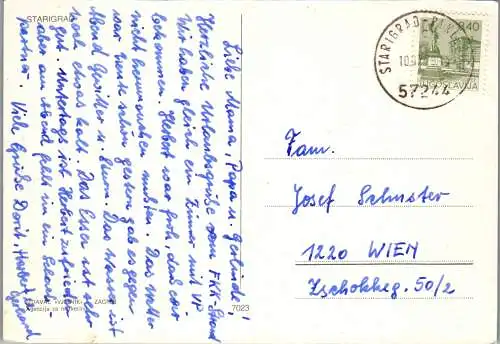 STARIGRAD
Liebe Mama, Papa u. Gertrude!
Herzliche Urlaubsgrüße vom FKK-Strand
Wir haben gleich ein Zimmer mit VP
bekommen. Herbert war froh, daß wir
nicht herumreden mußten. Das Wetter
war heute schön gestern gab es gegen
Abend Gewitter u. Sturm. Das Wasser ist
noch etwas kalt. Das Essen ist sehr
gut. Untertags ist Herbert zufrieden
aber am Abend fehlt ihm ein
partner. Viele Grüße Dorit, Herbert
Gerhard
ZAGREB
Agencija za marketing
7023
STARIGRAD
10.
57244
0,40
JUGOSLAVIJA
Fam.
Josef Schuster
1220 WIEN
Zschokkeg. 50/2